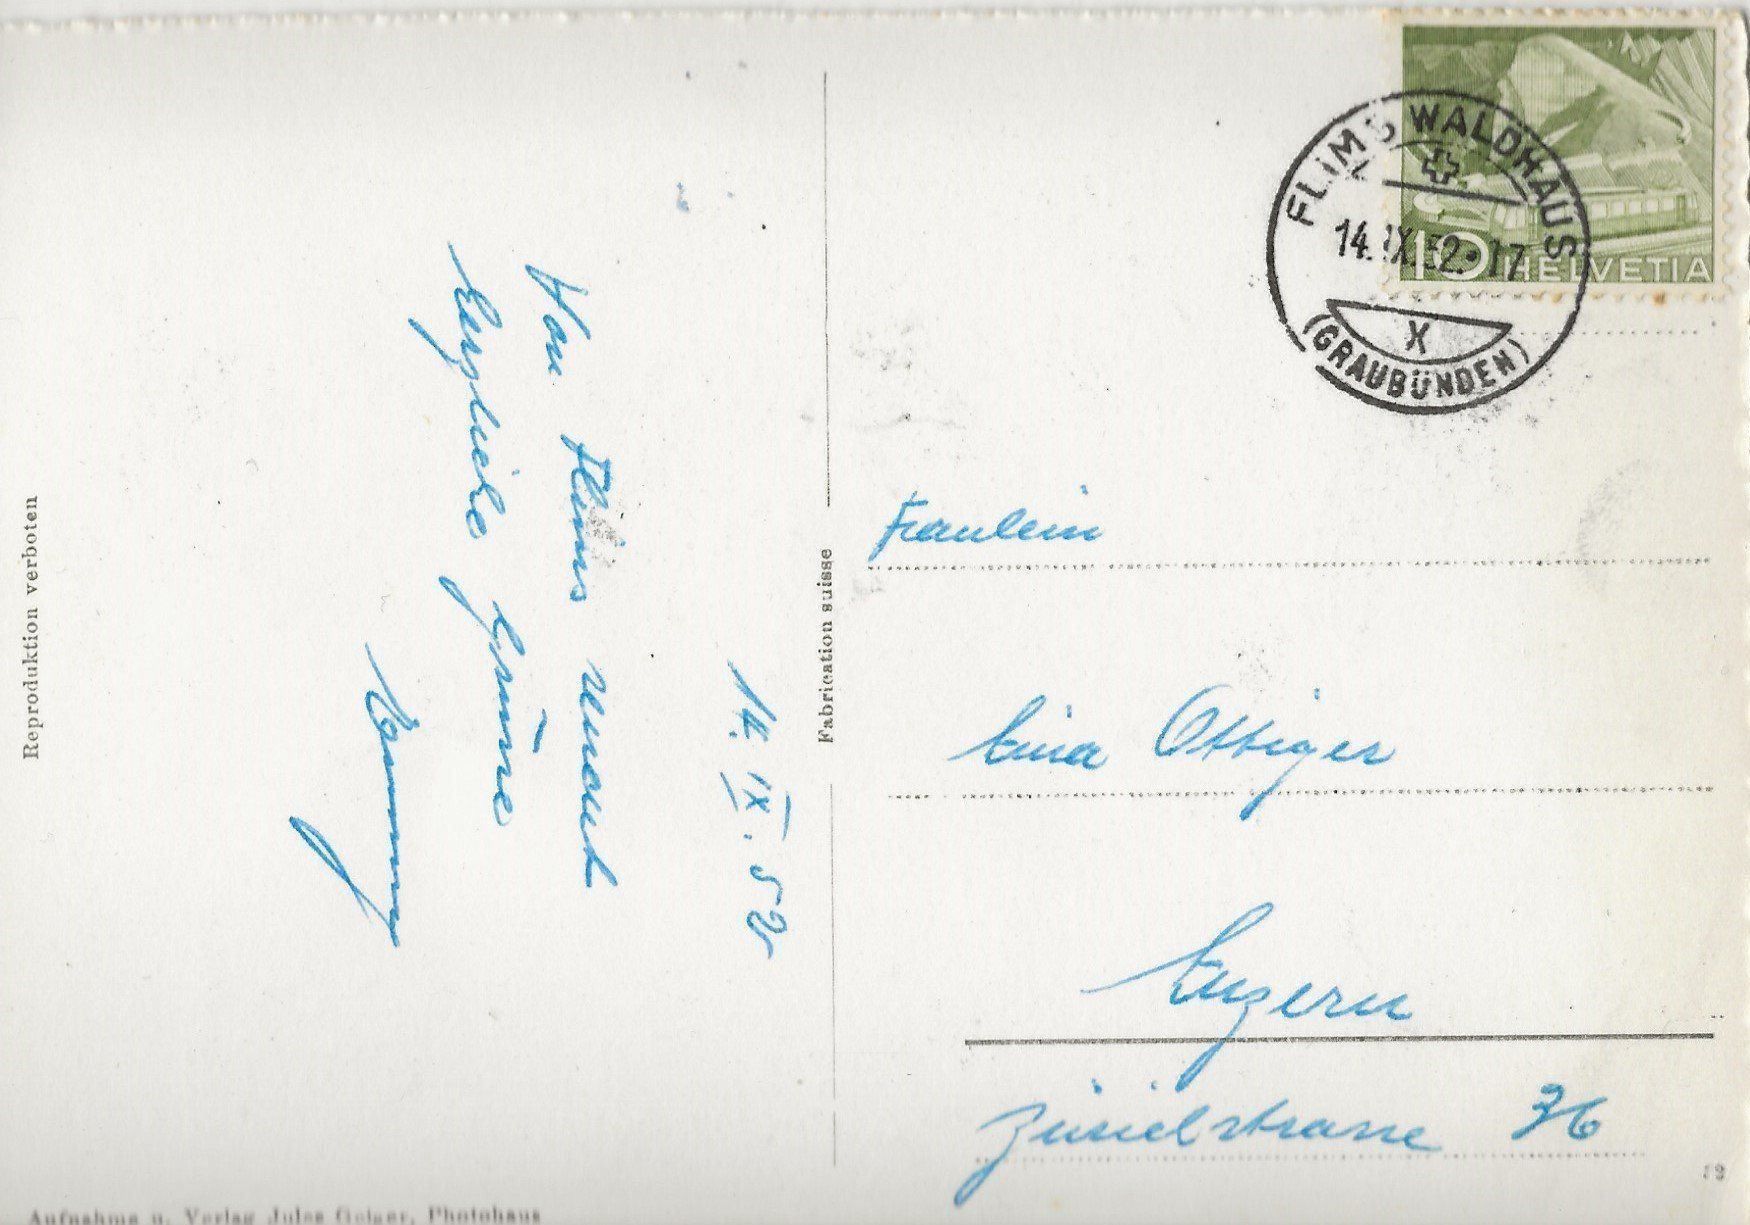 14. IX. 52
Von Flims
herzliche Grüsse
Reproduktion verboten
Aufnahme u. Verlag Jules Geiger, Photohaus
Fabrication suisse
10 HELVETIA
FLIMS WALDHAUS
14.IX.52.-17
X
(GRAUBÜNDEN)
Fräulein
Lina Ottiger
Luzern
36
52